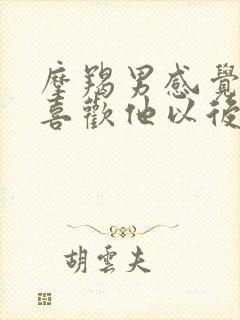 摩羯男感覺
喜歡他以後
胡雲夫